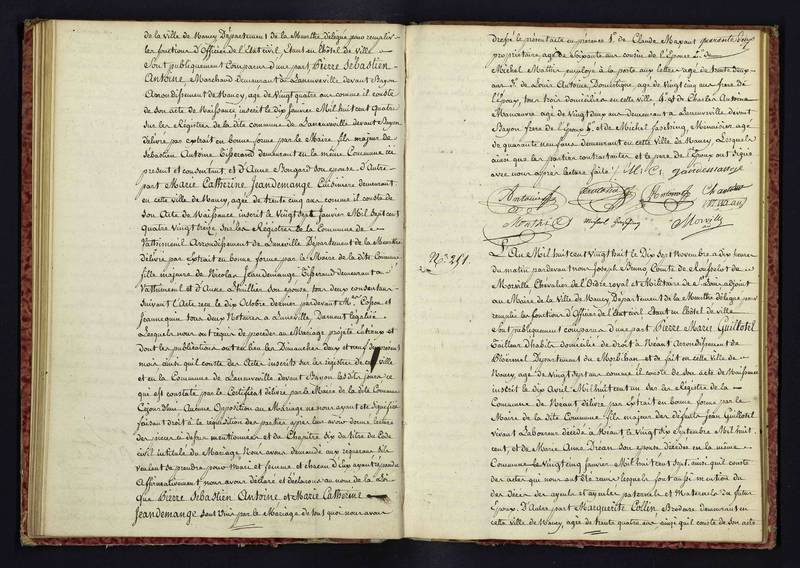 de la ville de Nancy Département de la Meurthe délégué pour remplir
les fonctions d'Officier de l'Etat civil, Etant en l'hôtel de ville
Sont publiquement Comparus d'une part Pierre Sébastien
Antoine, Marchand demeurant à Laneuveville devant Bayon
Arrondissement de Nancy, agé de vingt quatre ans comme il conste
de son acte de Naissance inscrit le dix Janvier Mil huit cent Quatre
sur les Régistres de la dite commune de Laneuveville devant Bayon
délivré par extrait en bonne forme par le Maire, fils majeur de
Sébastien Antoine Tisserand demeurant en la même Commune ici
présent et consentant, et d'Anne Bongard son épouse, d'Autre
part Marie Catherine Jeandemange Cuisinière demeurant
en cette ville de Nancy, agée de trente cinq ans comme il conste de
son Acte de Naissance inscrit le vingt sept Janvier Mil sept cent
Quatre vingt treize sur les Régistres de la Commune de
Vathiménil Arrondissement de Lunéville Département de la Meurthe
délivré par Extrait en bonne forme par le Maire de la dite Commune
fille majeure de Nicolas Jeandemange Tisserand demeurant à
Vathiménil et d'Anne Lhuillier son épouse tous deux consentans
suivant l'Acte reçu le dix Octobre dernier pardevant Me. Cosson et
Jeannequin tous deux Notaires à Lunéville, Dument légalisé
Lesquels nous ont requis de procéder au Mariage projeté entr'eux et
dont les publications ont eu lieu les Dimanches deux et neuf du présent
mois ainsi qu'il conste des Actes inscrits sur les régistres de cette ville
et en la Commune de Laneuveville devant Bayon les dits jours ce
qui est constaté par le Certificat délivré par le Maire de la dite Commune
Ce jourd'hui Aucune Opposition au Mariage ne nous ayant été signifiée
faisant droit à la réquisition des parties après leur avoir donné lecture
des pièces ci dessus mentionnées et du Chapitre six du titre du Code
civil intitulé du Mariage Nous avons demandé aux requérans s'ils
veulent se prendre pour Mari et femme et chacun d'Eux ayant répondu
Affirmativement nous avons déclaré et déclarons au nom de la Loi
Que Pierre Sébastien Antoine et Marie Catherine
Jeandemange sont Unis par le Mariage de tout quoi nous avons
dressé le présent acte en présence 1° de Claude Mayant
propriétaire agé de soixante ans cousin de l'Epouse 2° de
Michel Mathis employé à la poste aux lettres agé de trente deux
ans 3° de Louis Antoine Domestique, agé de vingt cinq ans frère de
l'Epoux, tous trois domiciliés en cette ville 4° et de Charles Antoine
Manœuvre agé de vingt deux ans demeurant à Laneuveville devant
Bayon frère de l'Epoux 5° et de Michel Fasching, Menuisier agé
de quarante neuf ans demeurant en cette ville de Nancy, Lesquels
ainsi que les parties contractantes et le père de l'Epoux ont signés
avec nous après lecture faite / M. C. Jandemange
Antoine
Michel Fasching
Morville
N° 251.
L'An Mil huit cent vingt huit le Dix sept Novembre à dix heures
du matin pardevant nous Joseph Bruno Comte de Rousselot de
Morville Chevalier de l'Ordre royal et Militaire de St. Louis adjoint
au Maire de la Ville de Nancy Département de la Meurthe délégué pour
remplir les fonctions d'Officier de l'Etat civil Etant en l'hôtel de ville
Sont publiquement comparus d'une part Pierre Marie Guillotil
Tailleur d'habits domicilié de droit à Néant Arrondissement de
Ploermel Département du Morbihan et de fait en cette Ville de
Nancy agé de vingt sept ans comme il conste de son acte de Naissance
inscrit le dix Avril Mil huit cent un sur les Régistres de la
Commune de Néant délivré par Extrait en bonne forme par le
Maire de la dite Commune fils majeur des défunts Jean Guillotil
vivant Laboureur décédé à Néant le vingt dix Septembre Mil huit
cent, et de Marie Anne Préan son épouse décédée en la même
Commune le vingt cinq Janvier Mil huit cent sept, ainsi qu'il conste
des actes qui nous ont été remis lesquels font aussi mention du
des décès des ayeuls et ayeules paternels et Maternels du futur
Epoux. D'Autre part Marguerite Collin Brodeuse demeurant en
cette ville de Nancy, agée de trente quatre ans ainsi qu'il conste de son acte